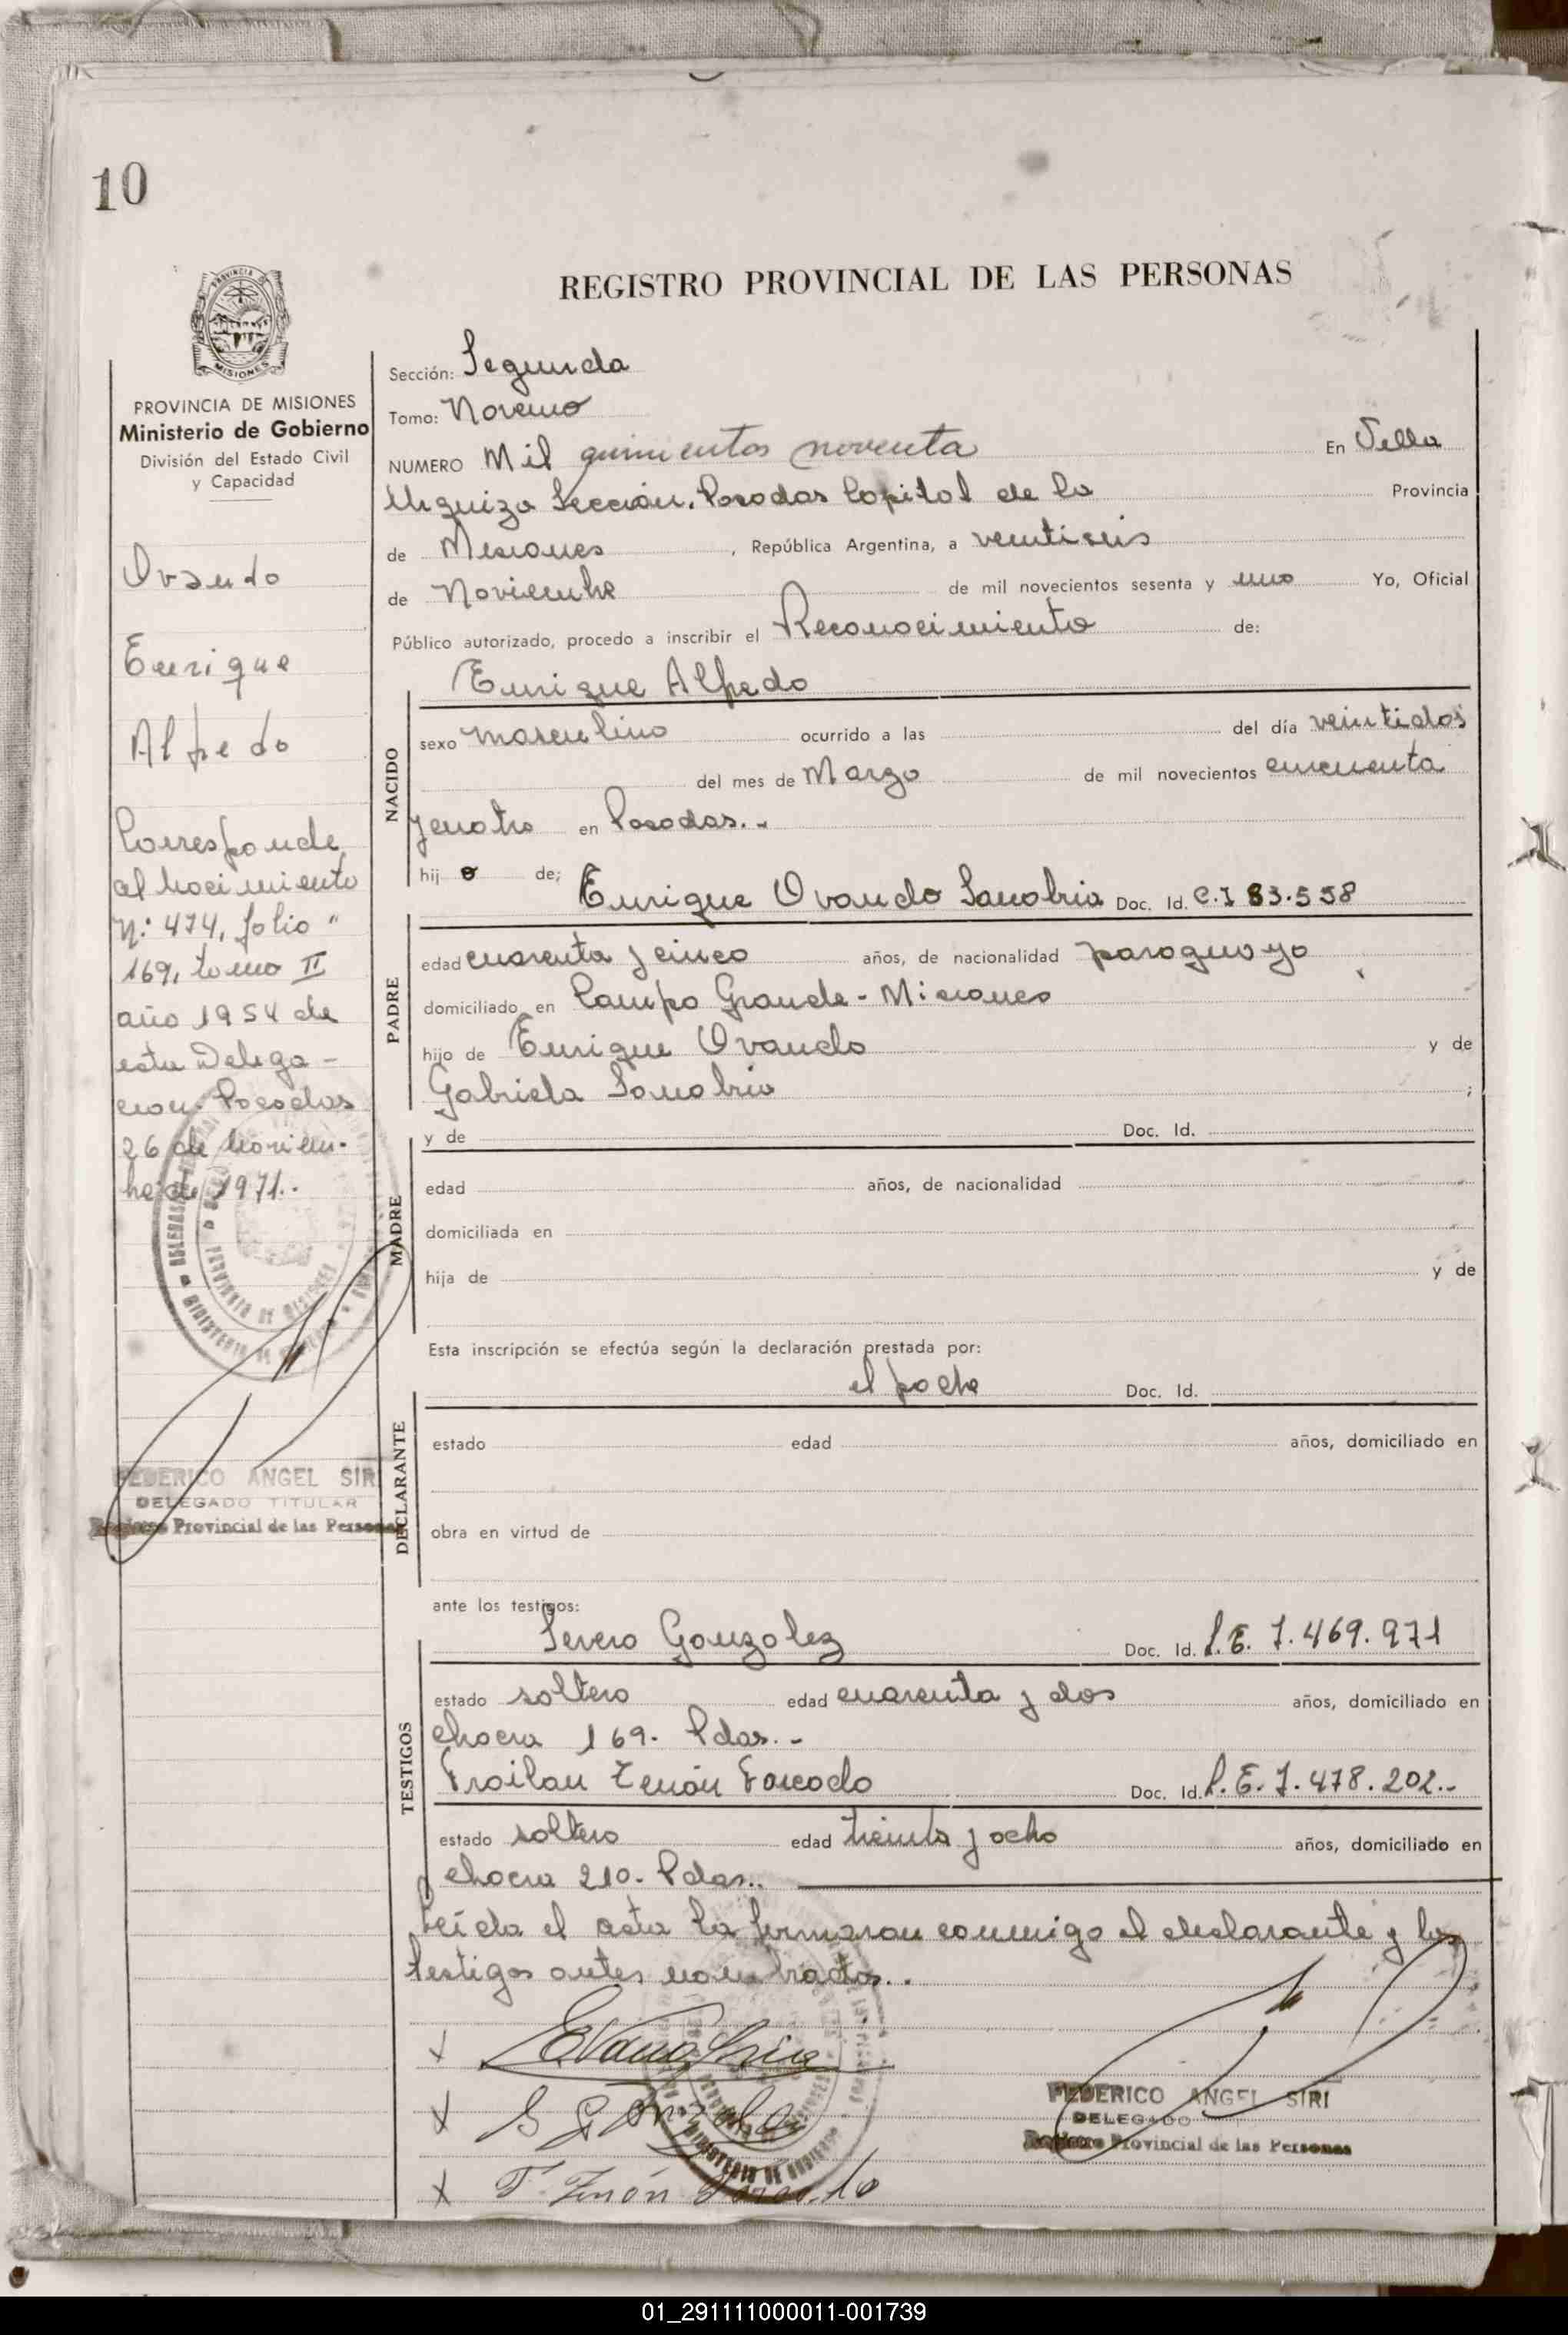 10
REGISTRO PROVINCIAL DE LAS PERSONAS
PROVINCIA DE MISIONES
Ministerio de Gobierno
División del Estado Civil
y Capacidad
Ovando
Enrique
Alfredo
Corresponde
al nacimiento
Nº: 474, folio "
169, tomo II
año 1954 de
esta Delega-
cion. Posadas
26 de noviem-
bre de 1971.-
FEDERICO ANGEL SIRI
DELEGADO TITULAR
Registro Provincial de las Personas
Sección: Segunda
Tomo: Noveno
NUMERO Mil quinientos noventa En Villa
Urquiza Sección. Posadas Capital de la Provincia
de Misiones, República Argentina, a veintiseis
de Noviembre de mil novecientos sesenta y uno Yo, Oficial
Público autorizado, procedo a inscribir el Reconocimiento de:
Enrique Alfredo
NACIDO
sexo masculino ocurrido a las del día veintidos
del mes de Marzo de mil novecientos cincuenta
y cuatro en Posadas.-
hijo de; Enrique Ovando Sanabria Doc. Id. C.I 83.558
PADRE
edad cuarenta y cinco años, de nacionalidad paraguayo
domiciliado en Campo Grande - Misiones
hijo de Enrique Ovando y de
Gabriela Sanabria ;
MADRE
y de Doc. Id.
edad años, de nacionalidad
domiciliada en
hija de y de
Esta inscripción se efectúa según la declaración prestada por:
el padre Doc. Id.
DECLARANTE
estado edad años, domiciliado en
obra en virtud de
ante los testigos:
TESTIGOS
Severo Gonzalez Doc. Id. L.E. 7.469.971
estado soltero edad cuarenta y dos años, domiciliado en
chacra 169. Pdas.-
Froilan Zenón Doc. Id. L.E. 7.478.202.-
estado soltero edad treinta y ocho años, domiciliado en
chacra 210. Pdas..
Leída el acta la firmaron conmigo el declarante y los
testigos antes nombrados..
x
x S Gonzalez
x F. Zenón
FEDERICO ANGEL SIRI
DELEGADO
Registro Provincial de las Personas
01_291111000011-001739